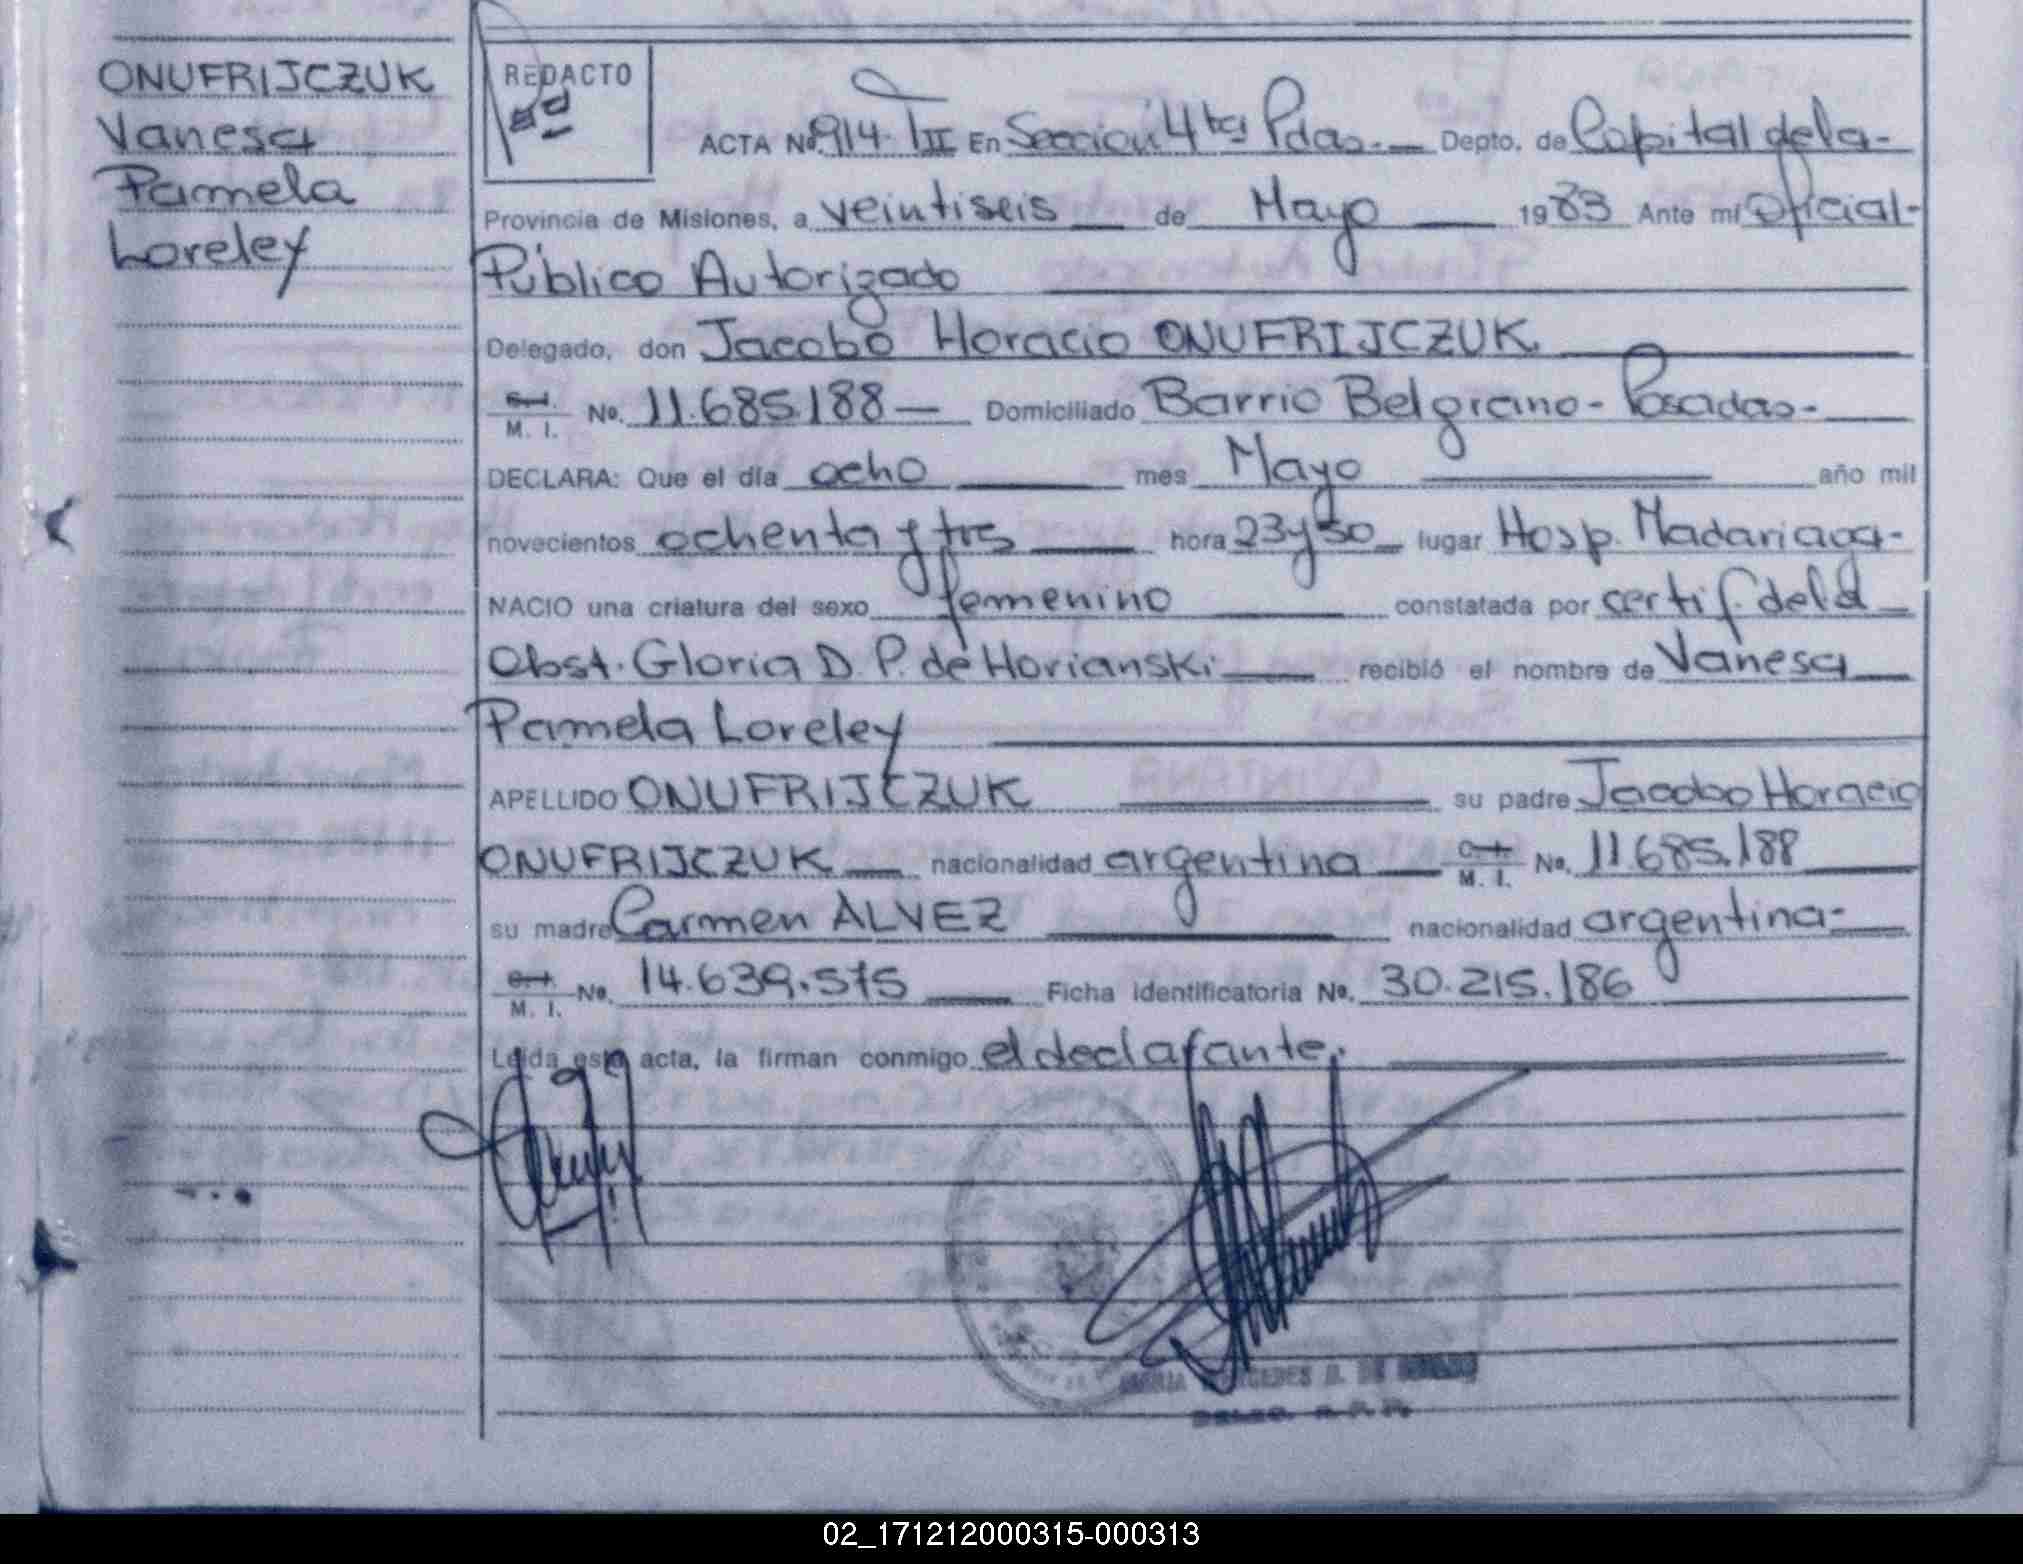 ONUFRIJCZUK
Vanesa
Pamela
Loreley
REDACTO
ACTA No. 914. TIII En Seccion 4ta Pdas.- Depto. de Capital de la-
Provincia de Misiones, a veintiseis de Mayo 1983 Ante mí Oficial-
Público Autorizado
Delegado, don Jacobo Horacio ONUFRIJCZUK.
C. I. M. I. No. 11.685.188 Domiciliado Barrio Belgrano- Posadas-
DECLARA: Que el día ocho mes Mayo año mil
novecientos ochenta y tres hora 23 y 50 lugar Hosp. Madariaga-
NACIO una criatura del sexo femenino constatada por certif. de la
Obst. Gloria D. P. de Horianski recibió el nombre de Vanesa
Pamela Loreley
APELLIDO ONUFRIJCZUK su padre Jacobo Horacio
ONUFRIJCZUK nacionalidad argentina C. I. M. I. No. 11.685.188
su madre Carmen ALVEZ nacionalidad argentina-
C. I. M. I. No. 14.639.575 Ficha identificatoria No. 30.215.186
Leída esta acta, la firman conmigo el declarante.
MARIA MERCEDES
02_171212000315-000313